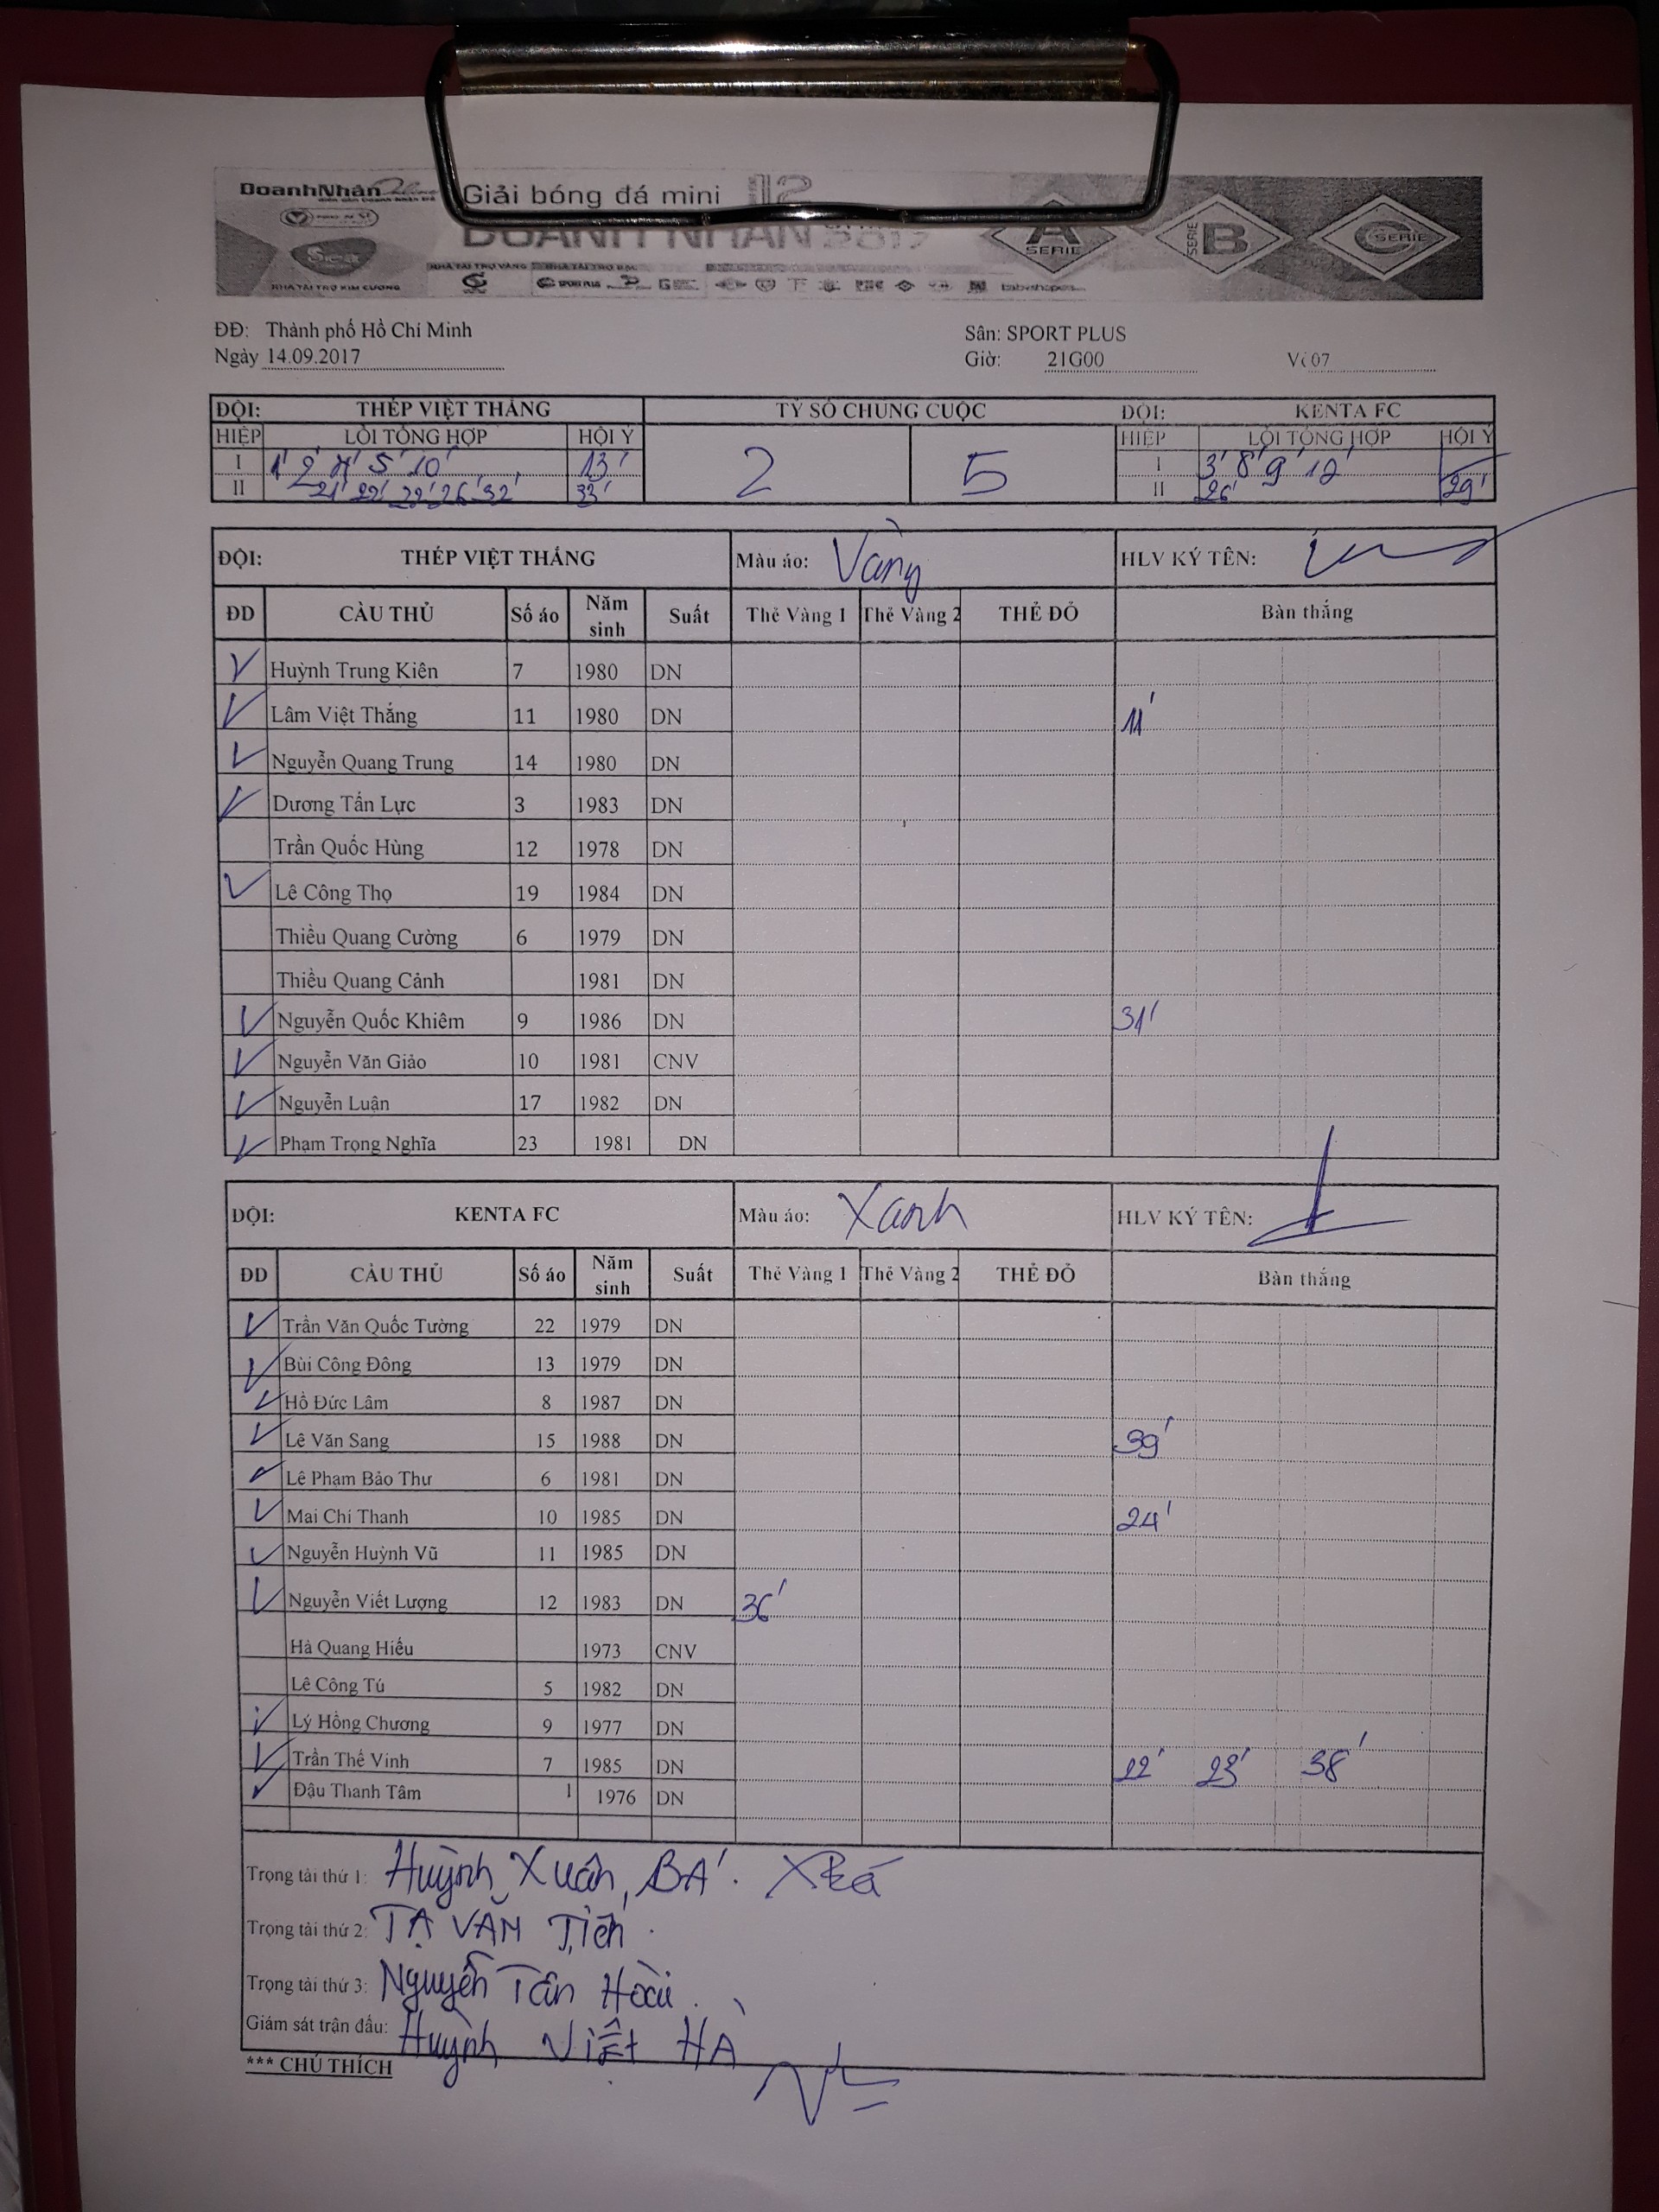 DoanhNhân
Giải bóng đá mini 12
DOANH NHÂN 2017
NHÀ TÀI TRỢ KIM CƯƠNG NHÀ TÀI TRỢ VÀNG
SPORT PLUS
A SERIE SERIE B SERIE
ĐĐ: Thành phố Hồ Chí Minh Sân: SPORT PLUS
Ngày 14.09.2017 Giờ: 21G00 07
ĐỘI: THÉP VIỆT THẮNG TỶ SỐ CHUNG CUỘC ĐỘI: KENTA FC
HIỆP LỖI TỔNG HỢP HỘI Ý HIỆP LỖI TỔNG HỢP HỘI Ý
I 1' 2' 4' 5' 10' 13' 2 5 I 3' 8' 9' 12'
II 21' 22' 22' 26' 32' 33' II 26' 29'
ĐỘI: THÉP VIỆT THẮNG Màu áo: Vàng HLV KÝ TÊN:
ĐD CẦU THỦ Số áo Năm sinh Suất Thẻ Vàng 1 Thẻ Vàng 2 THẺ ĐỎ Bàn thắng
Huỳnh Trung Kiên 7 1980 DN
Lâm Việt Thắng 11 1980 DN 11'
Nguyễn Quang Trung 14 1980 DN
Dương Tấn Lực 3 1983 DN
Trần Quốc Hùng 12 1978 DN
Lê Công Thọ 19 1984 DN
Thiều Quang Cường 6 1979 DN
Thiều Quang Cảnh 1981 DN
Nguyễn Quốc Khiêm 9 1986 DN 31'
Nguyễn Văn Giảo 10 1981 CNV
Nguyễn Luận 17 1982 DN
Phạm Trọng Nghĩa 23 1981 DN
ĐỘI: KENTA FC Màu áo: Xanh HLV KÝ TÊN:
ĐD CẦU THỦ Số áo Năm sinh Suất Thẻ Vàng 1 Thẻ Vàng 2 THẺ ĐỎ Bàn thắng
Trần Văn Quốc Tường 22 1979 DN
Bùi Công Đông 13 1979 DN
Hồ Đức Lâm 8 1987 DN
Lê Văn Sang 15 1988 DN 39'
Lê Phạm Bảo Thư 6 1981 DN
Mai Chí Thanh 10 1985 DN 24'
Nguyễn Huỳnh Vũ 11 1985 DN
Nguyễn Viết Lượng 12 1983 DN 36'
Hà Quang Hiếu 1973 CNV
Lê Công Tú 5 1982 DN
Lý Hồng Chương 9 1977 DN
Trần Thế Vinh 7 1985 DN 22' 23' 38'
Đậu Thanh Tâm 1 1976 DN
Trọng tài thứ 1: Huỳnh Xuân BÁ.
Trọng tài thứ 2: TẠ VĂN Tiến.
Trọng tài thứ 3: Nguyễn Tấn Hoài.
Giám sát trận đấu: Huỳnh Việt HÀ
*** CHÚ THÍCH